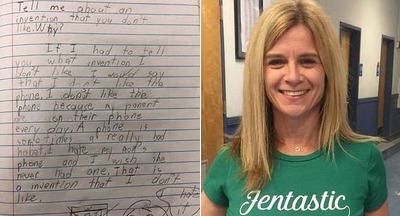 Tell me about an
invention that you don't
like. Why?
If I had to tell
you what invention I
don't like I would say
that I don't like the
phone. I don't like the
phone because my parent
are on their phone
every day. A phone is
sometimes a really bad
habit. I hate my mom's
phone and I wish she
never had one. That is
a invention that I don't
like.
I hate
Jentastic